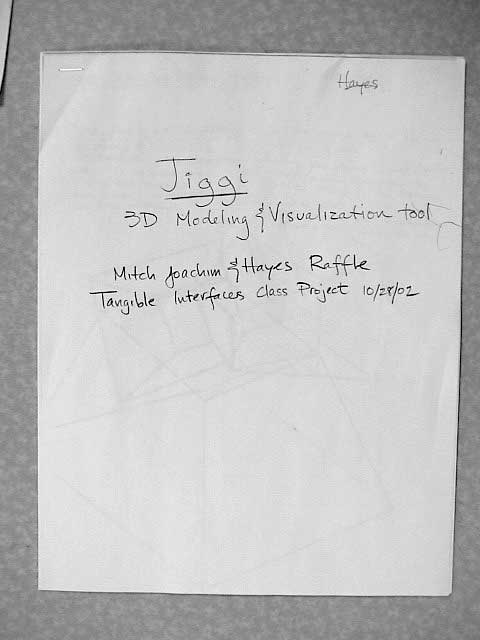 Hayes
Jiggi
3D Modeling & Visualization tool
Mitch Joachim & Hayes Raffle
Tangible Interfaces Class Project 10/28/02